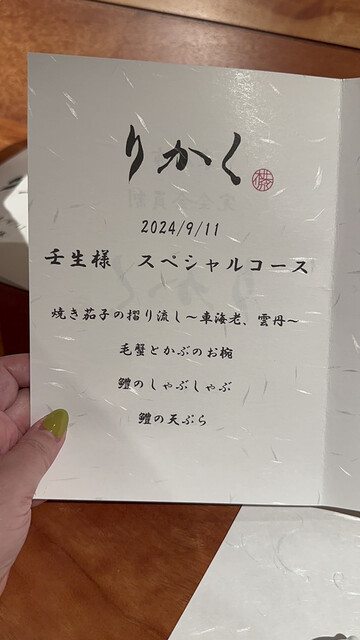 りかく
2024/9/11
壬生様 スペシャルコース
焼き茄子の摺り流し〜車海老、雲丹〜
毛蟹とかぶのお椀
鱧のしゃぶしゃぶ
鱧の天ぷら